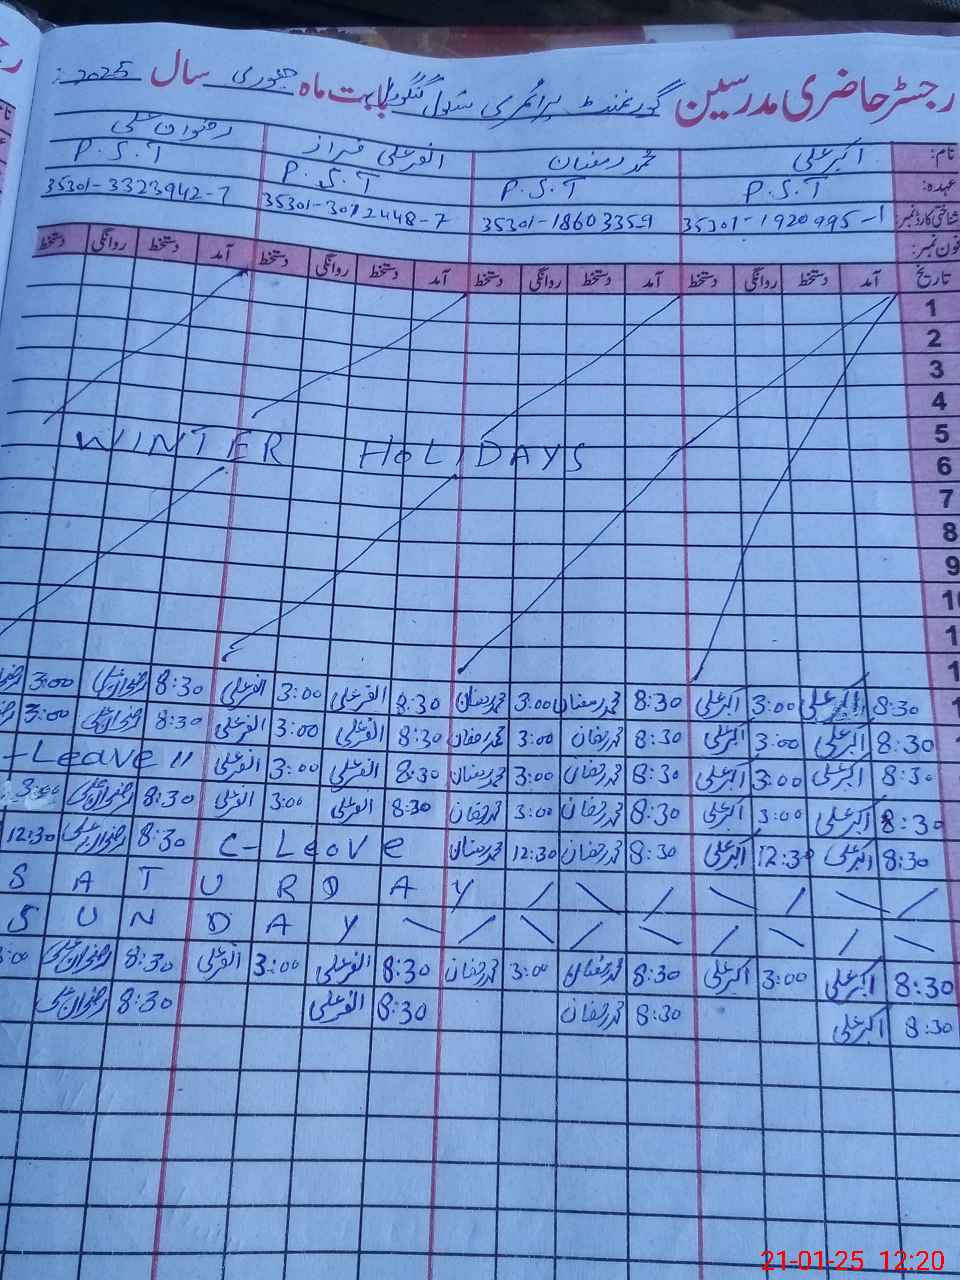 رجسٹر حاضری مدرسین گورنمنٹ پرائمری سکول بابت ماہ جنوری سال 2025
نام: اکبر علی محمد رمضان رضوان علی
عہدہ: P.S.T P.S.T P.S.T P.S.T
شناختی کارڈ نمبر: 35301-1920995-1 35301-1860335-9 35301-3012448-7 35301-3323942-7
فون نمبر:
تاریخ آمد دستخط روانگی دستخط آمد دستخط روانگی دستخط آمد دستخط روانگی دستخط آمد دستخط روانگی دستخط
1
2
3
4
5
WINTER HOLIDAYS
6
7
8
9
10
1
1
1 8:30 اکبر علی 3:00 اکبر علی 8:30 محمد رمضان 3:00 محمد رمضان 8:30 3:00 8:30 رضوان علی 3:00
1 8:30 اکبر علی 3:00 اکبر علی 8:30 محمد رمضان 3:00 محمد رمضان 8:30 3:00 8:30 رضوان علی 3:00
8:30 اکبر علی 3:00 اکبر علی 8:30 محمد رمضان 3:00 محمد رمضان 8:30 3:00 -Leave //
8:30 اکبر علی 3:00 اکبر علی 8:30 محمد رمضان 3:00 محمد رمضان 8:30 3:00 8:30 رضوان علی 3:00
8:30 اکبر علی 12:30 اکبر علی 8:30 محمد رمضان 12:30 محمد رمضان C-Leave 8:30 رضوان علی 12:30
SATURDAY
SUNDAY
8:30 اکبر علی 3:00 اکبر علی 8:30 محمد رمضان 3:00 محمد رمضان 8:30 3:00 8:30 رضوان علی 3:00
8:30 اکبر علی 8:30 محمد رمضان 8:30 8:30 رضوان علی
21-01-25 12:20